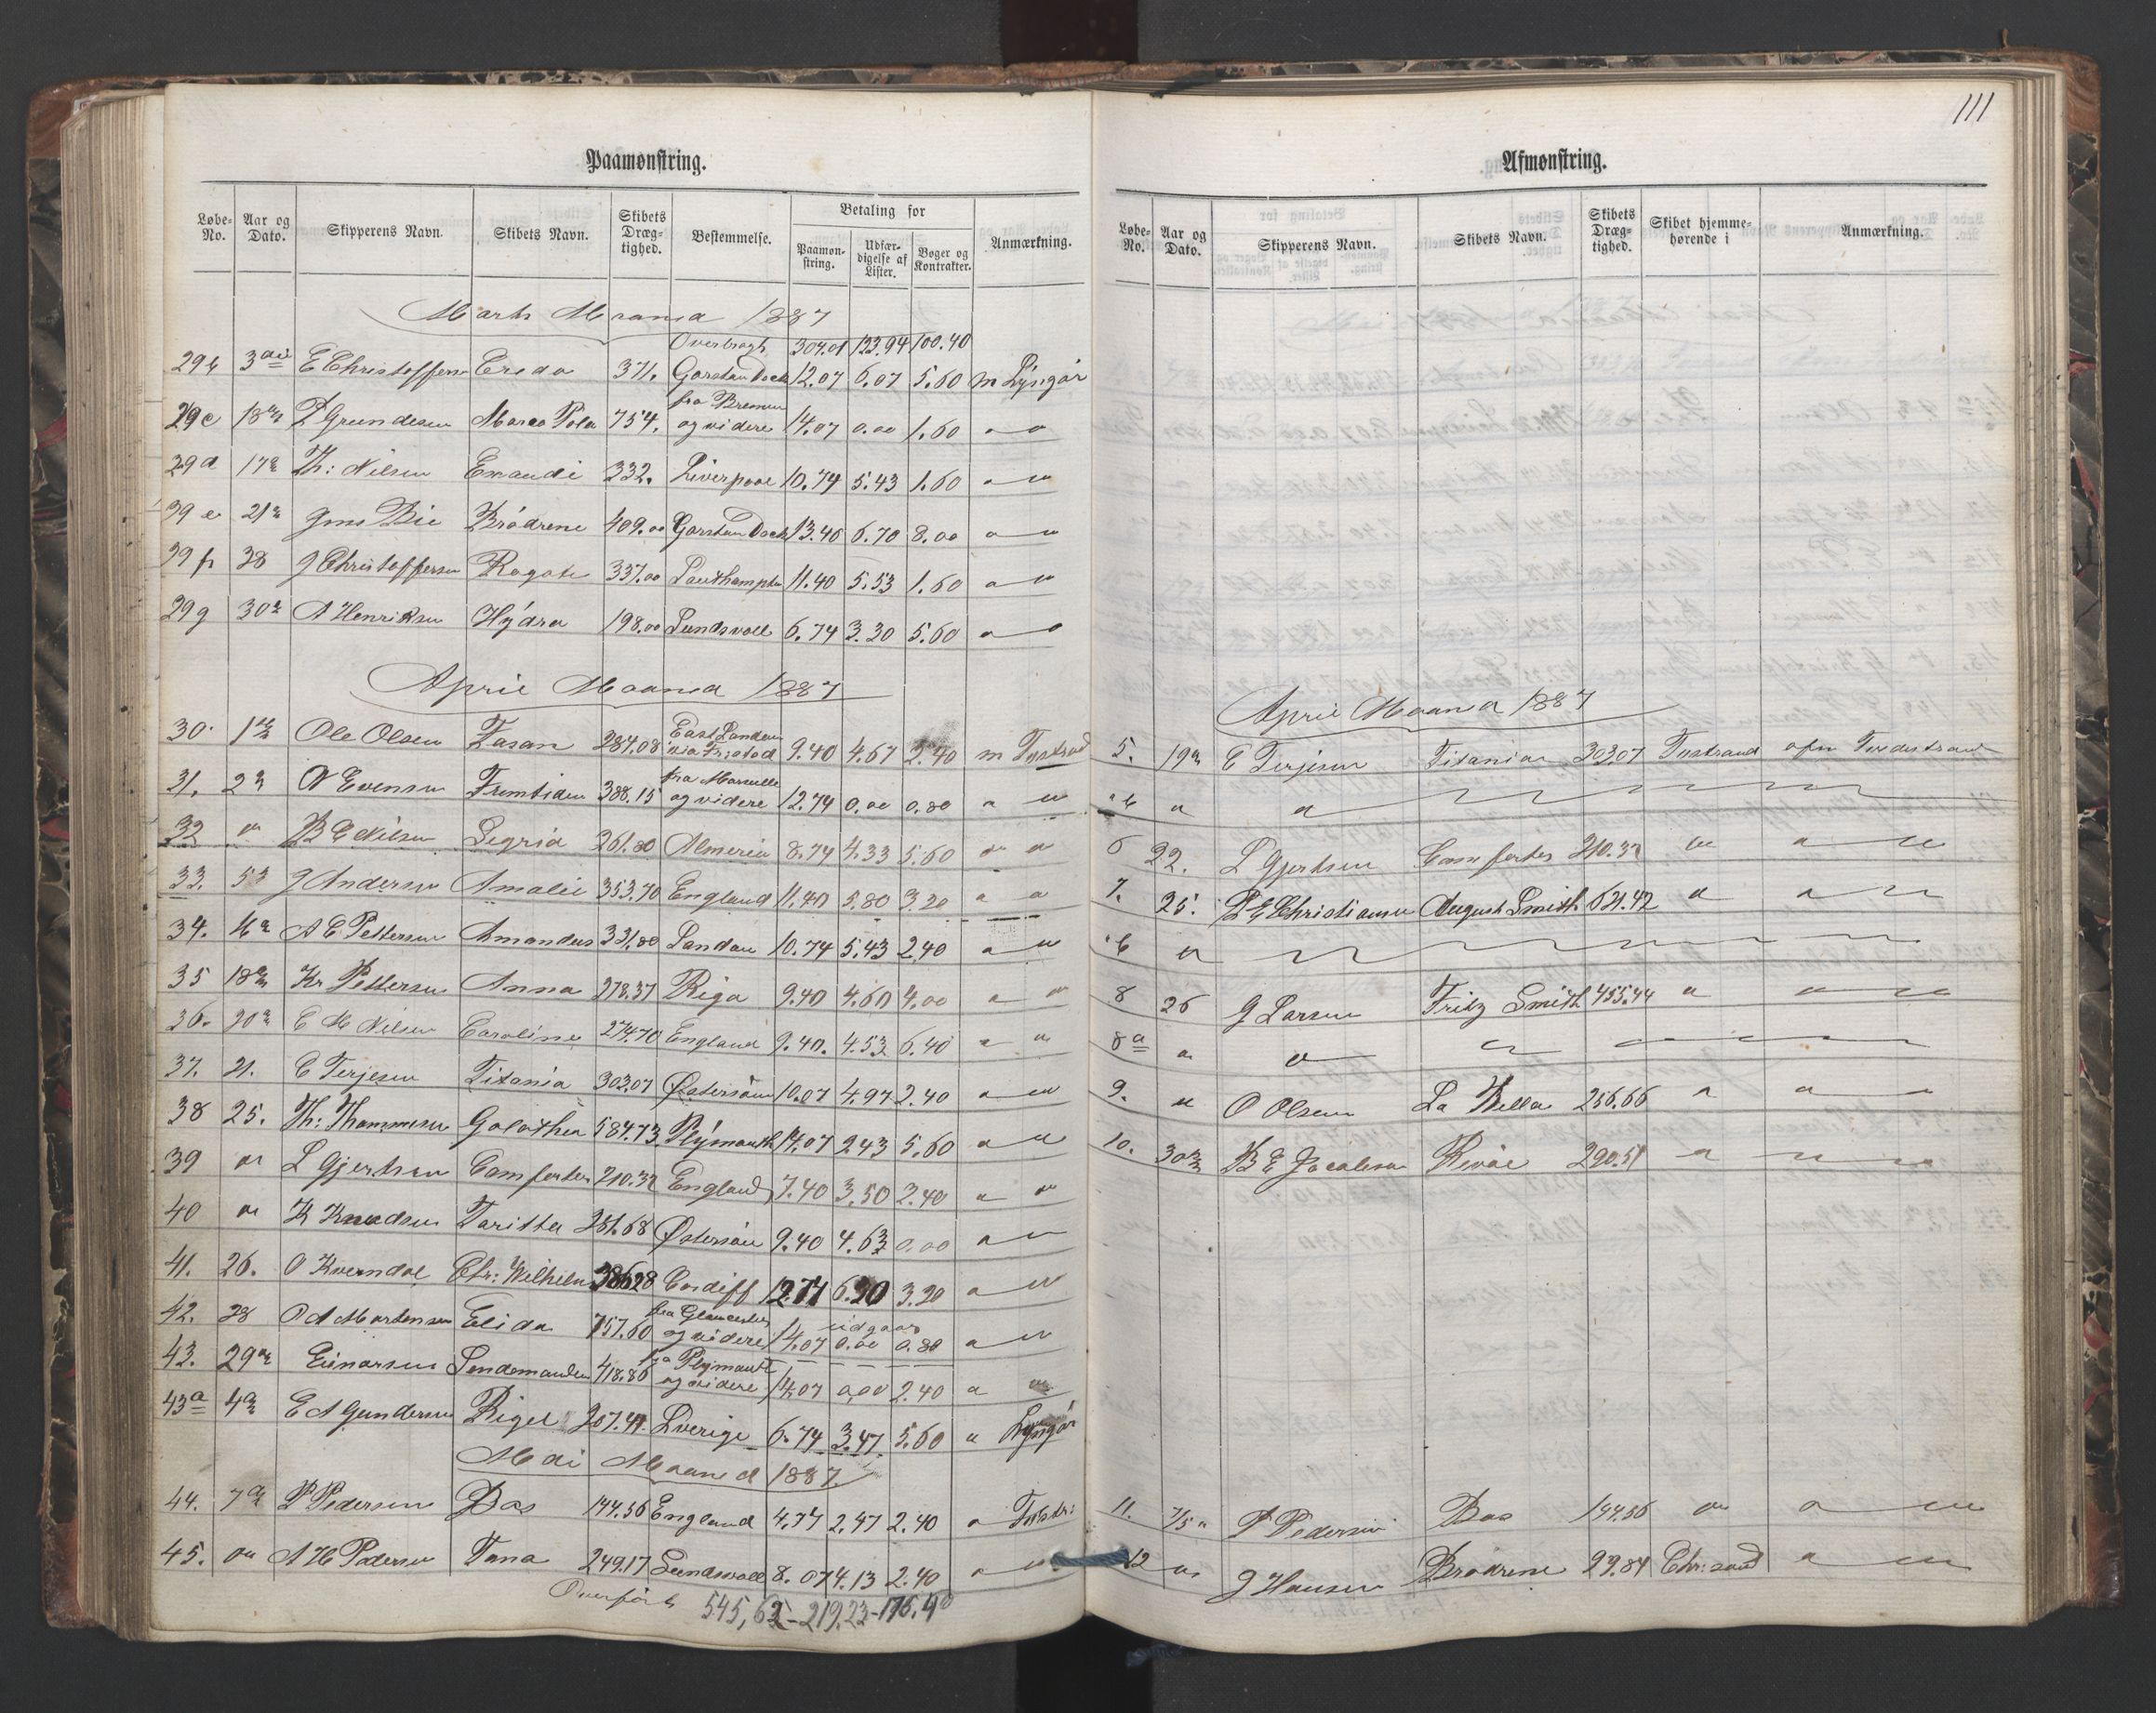 111
Paamønstring.
Løbe-No. Aar og Dato. Skipperens Navn. Skibets Navn. Skibets Dræg-tighed. Bestemmelse. Betaling for Paamøn-string. Udfær-digelse af Lister. Bøger og Kontrakter. Anmærkning.
Marts Maaned 1887
Overbragt 304.01 123.94 100.40
29b 3die E Christoffersen Creda 371. Garstan Dock 12.07 6.07 5.60 m Lyngør
29c 18de P Grundesen Marco Polo 754. fra Bremen og videre 14.07 0.00 1.60 " "
29d 17de Th: Nilsen Exaudi 332. Liverpool 10.74 5.43 1.60 " "
39e 21de Jens Bie Brødrene 409.00 Garstan Dock 13.40 6.70 8.00 " "
39f 28 J Christoffersen Rogate 337.00 Southampton 11.40 5.53 1.60 " "
29g 30de A Henriksen Hydra 198.00 Sundsvall 6.74 3.30 5.60 " "
April Maaned 1887
30. 1ste Ole Olsen Fasan 284.08 East London via Frstad 9.40 4.67 2.40 m Tvstrand
31. 2de A Evensen Fremtiden 388.15 fra Marseille og videre 12.74 0.00 0.80 " "
32 " B E Nilsen Sigrid 261.80 Almeria 8.74 4.33 5.60 " "
33. 5te J Andersen Amalie 353.70 England 11.40 5.80 3.20 " "
34. 16de A E Pettersen Amandus 331.80 London 10.74 5.43 2.40 " "
35 18de Kr Pettersen Anna 278.37 Riga 9.40 4.60 4.00 " "
36. 20de E M Nilsen Caroline 274.70 England 9.40. 4.53 6.40 " "
37. 21. E Terjesen Titania 303.07 Østersøen 10.07 4.97 2.40 " "
38 25. Th: Thommesen Galathea 584.73 Plymouth 14.07 9.43 5.60 " "
39 " L Gjertsen Comforter 210.32 England 7.40 3.50 2.40 " "
40 " K Knudsen Taritta 251.68 Østersøen 9.40 4.63 0.00 " "
41. 26. O Kverndal Chr: Wilhelm 386.28 Cardiff 12.74 6.20 3.20 " "
42. 28 O A Mortensen Elida 757.60 fra Gloucester og videre udgaar 14.07 0.00 0.80 " "
43. 29de Einarsen Sendemanden 418.86 fra Plymouth og videre 14.07 0.00 2.40 " "
43a 4de E A Gundersen Rigel 207.41 Sverige 6.74 3.47 5.60 " Lyngør
Mai Maaned 1887.
44. 7de P Pedersen Bos 144.56 England 4.74 2.47 2.40 " Tvstr:
45. " A H Pedersen Tana 249.17 Sundsvall 8.07 4.13 2.40 " "
Overført 545,62 - 219.23 - 176.40
Afmønstring.
Løbe-No. Aar og Dato. Skipperens Navn. Skibets Navn. Skibets Dræg-tighed. Skibet hjemme-hørende i Anmærkning.
April Maaned 1887
5. 19de E Terjesen Titania 303.07 Tvstrand afm Tvedestrand
" b " "
6 22. L Gjertsen Comforter 210.32 " " "
7. 25. P E Christiansen August Smith 621.42 " " "
" b "
8 26 J Larsen Fritz Smith 455.44 " " "
8a " " "
9. " O Olsen La Bella 256.66 " " "
10. 30te B E Jacobsen Rival 290.51 " " "
11. 7/5 " P Pedersen Bos 144.56 " " "
12 " J Hansen Brødrene 99.84 Chr:sand " "